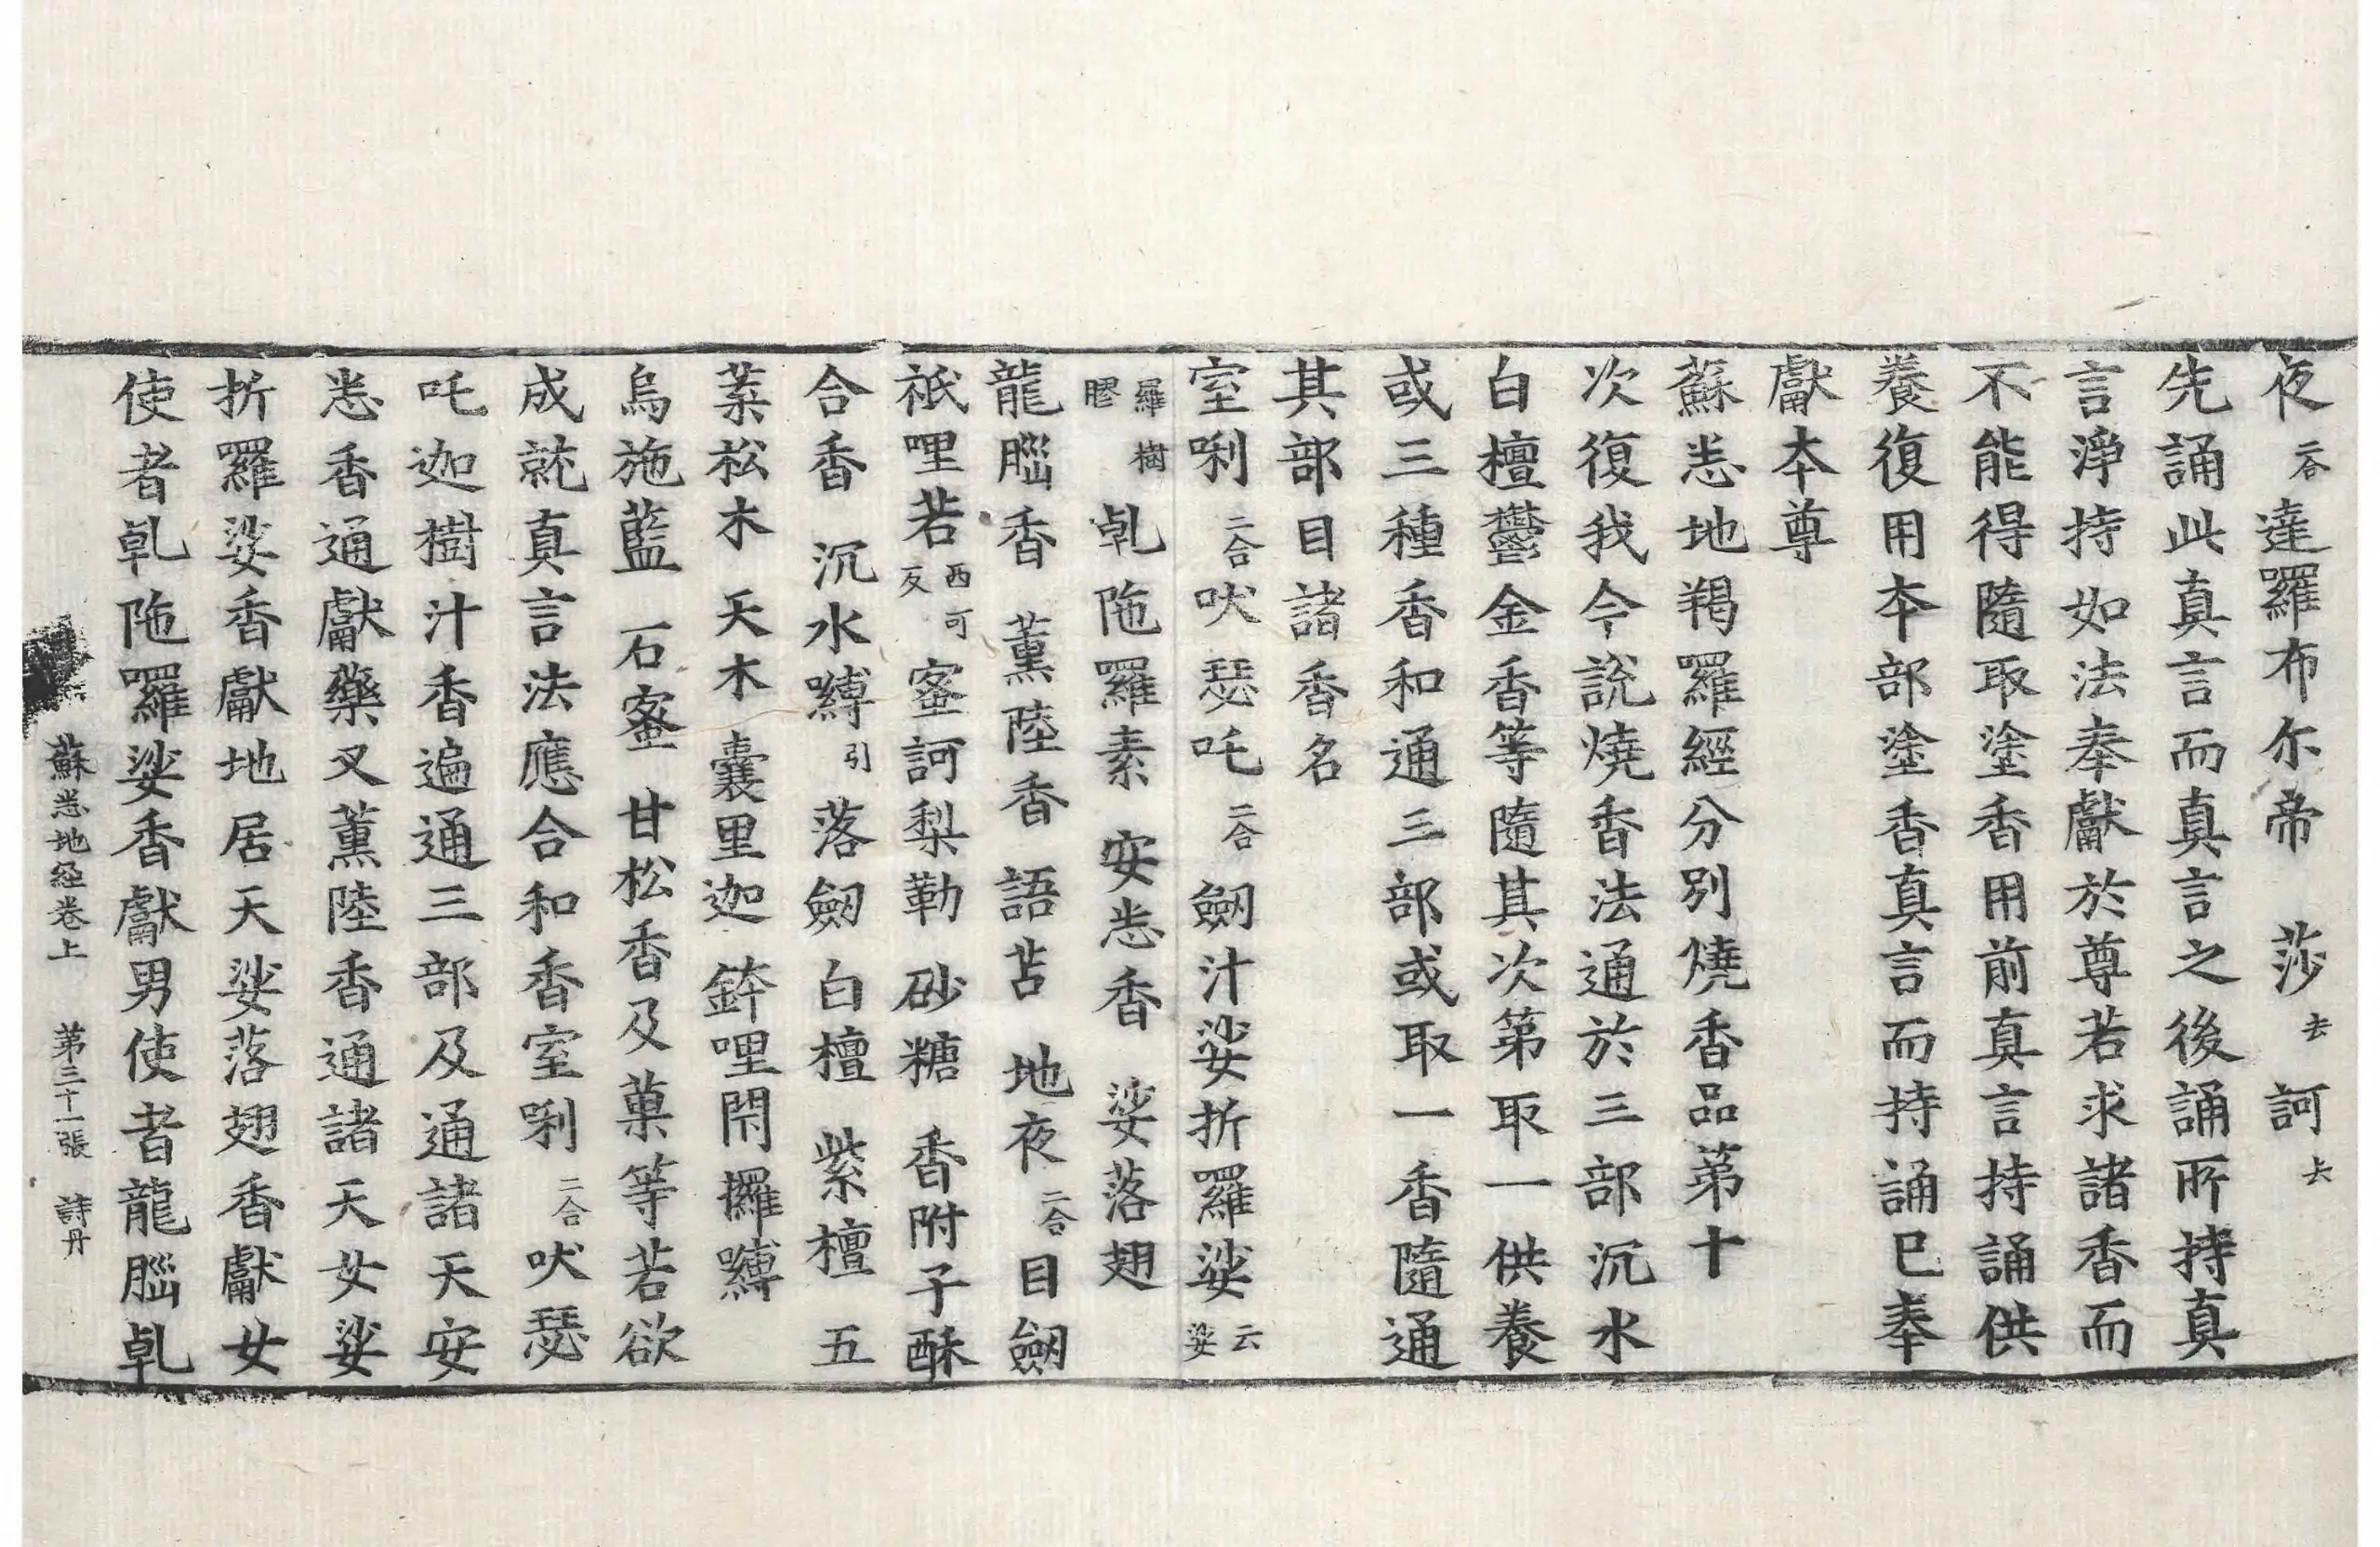 夜二合達囉布尔帝 莎去訶六
先誦此真言而真言之後誦所持真
言淨持如法奉獻於尊若求諸香而
不能得隨取塗香用前真言持誦供
養復用本部塗香真言而持誦已奉
獻本尊
蘇悉地羯羅經分別燒香品第十
次復我今說燒香法通於三部沉水
白檀鬱金香等隨其次第取一供養
或三種香和通三部或取一香隨通
其部目諸香名
室唎二合吠瑟吒二合劒汁娑折羅娑云娑
羅樹膠 乹陁羅素 安悉香 娑落翅
龍腦香 薰陸香 語苫 地夜二合目劒
祇哩若西可反 蜜訶梨勒 砂糖 香附子酥
合香 沉水嚩引 落劒 白檀 紫檀 五
葉松木 天木 囊里迦 鉢哩閇攞嚩
烏施藍 石蜜 甘松香及菓等若欲
成就真言法應合和香室唎二合吠瑟
吒迦樹汁香遍通三部及通諸天安
悉香通獻藥叉薰陸香通諸天女娑
折囉娑香獻地居天娑落翅香獻女
使者乹陁囉娑香獻男使者龍腦乹
蘇悉地經卷上 第三十一張 詩丹